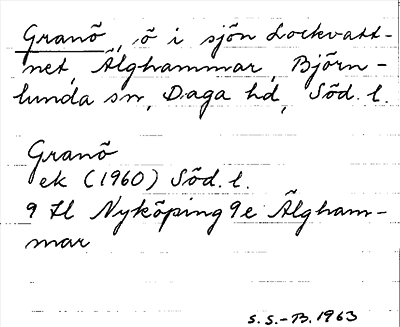 Granö, ö i sjön Lockvatt-
net, Älghammar, Björn-
lunda sn, Daga hd, Söd. l.
Granö
ek (1960) Söd. l.
9 H Nyköping 9e Älgham-
mar
S.S.-B. 1963